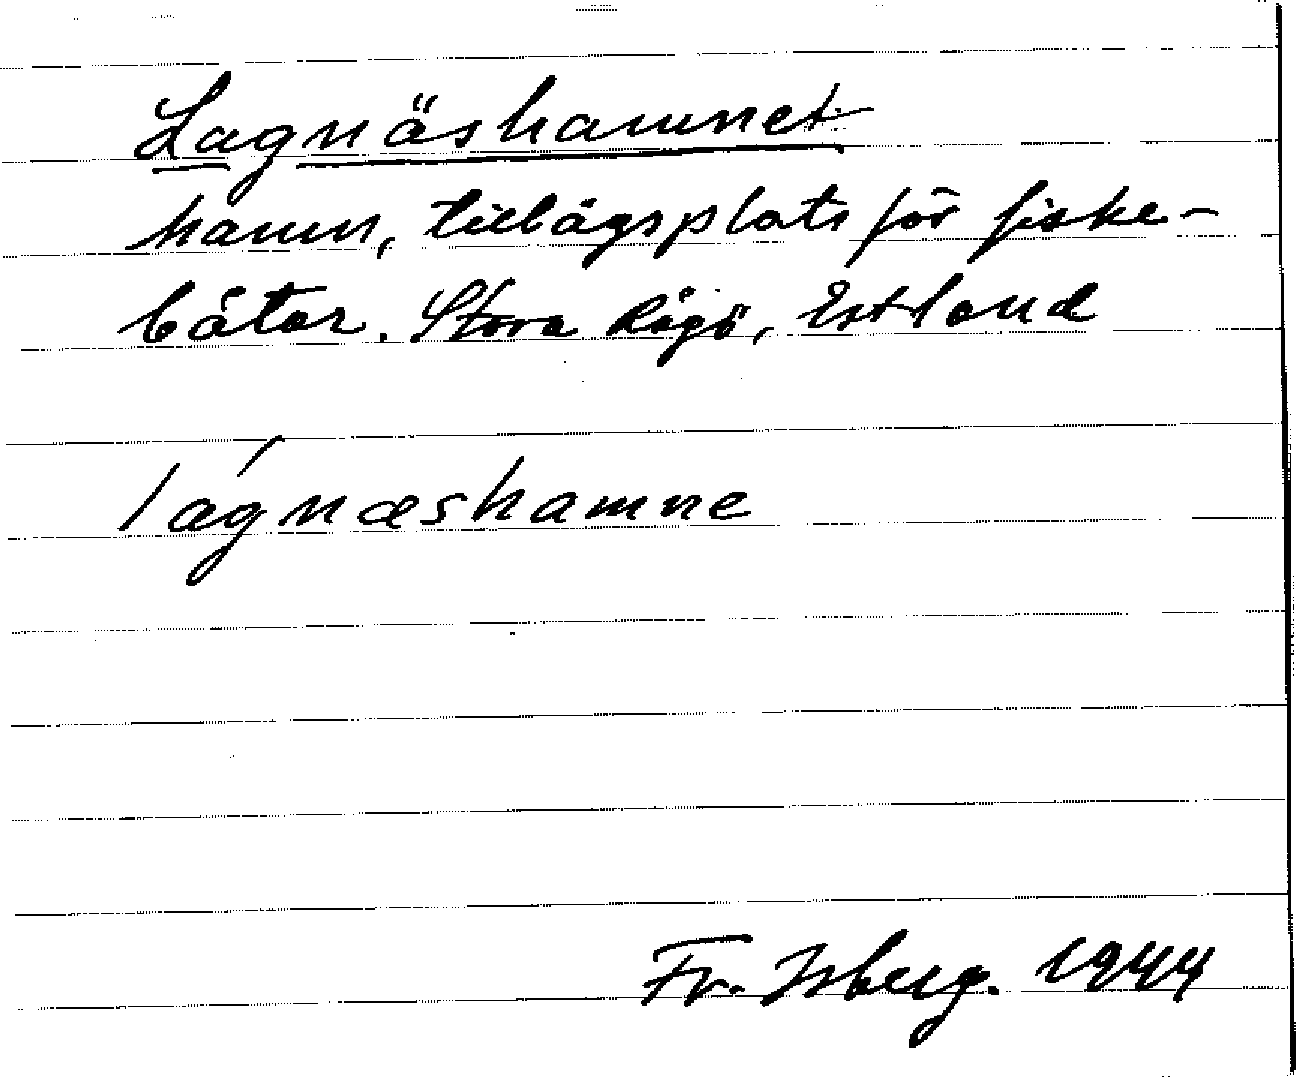 Lagnäshamnet
hamn, tillägsplats för fiske-
båtar. Stora Rågö, Estland
lágnæshamne
Fr. Isberg. 1944